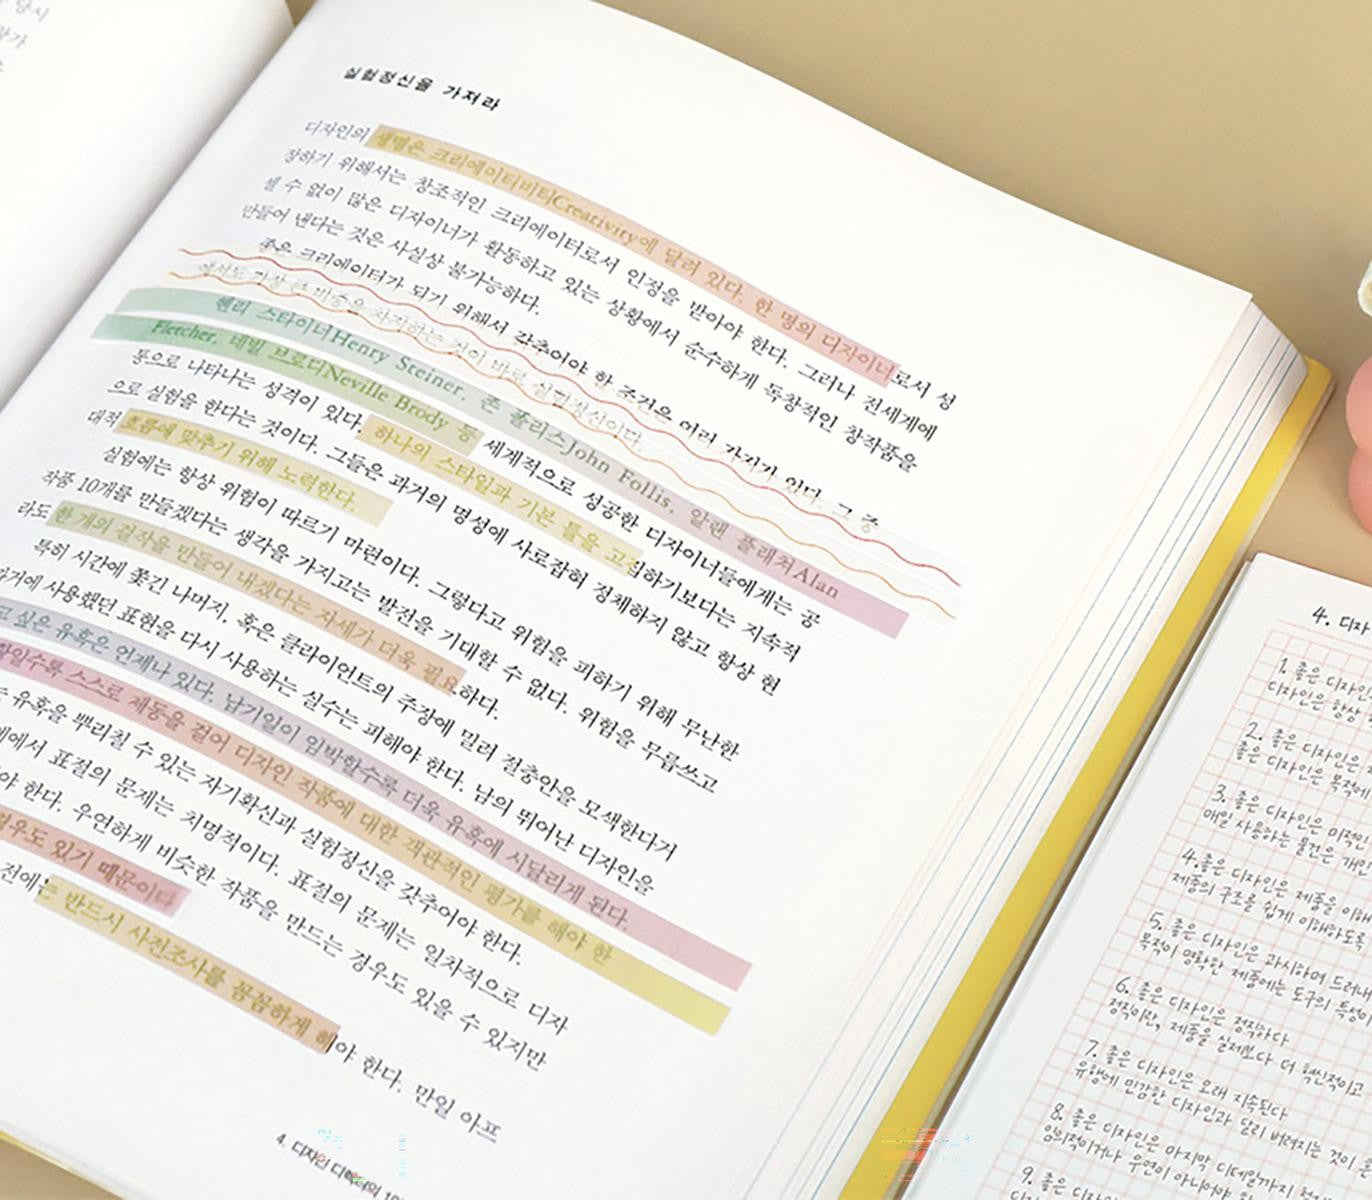 실험정신을 가져라
디자인의 생명은 크리에이티비티Creativity에 달려 있다. 한 명의 디자이너로서 성
장하기 위해서는 창조적인 크리에이터로서 인정을 받아야 한다. 그러나 전세계에
셀 수 없이 많은 디자이너가 활동하고 있는 상황에서 순수하게 독창적인 창작품을
만들어 낸다는 것은 사실상 불가능하다.
좋은 크리에이터가 되기 위해서 갖추어야 할 조건은 여러 가지가 있다. 그 중
에서도 가장 큰 비중을 차지하는 것이 바로 실험정신이다.
헨리 스타이너Henry Steiner, 존 폴리스John Follis, 알랜 플래쳐Alan
Fletcher, 네빌 브로디Neville Brody 등 세계적으로 성공한 디자이너들에게는 공
통으로 나타나는 성격이 있다. 하나의 스타일과 기본 틀을 고집하기보다는 지속적
으로 실험을 한다는 것이다. 그들은 과거의 명성에 사로잡혀 정체하지 않고 항상 현
대적 흐름에 맞추기 위해 노력한다.
실험에는 항상 위험이 따르기 마련이다. 그렇다고 위험을 피하기 위해 무난한
작품 10개를 만들겠다는 생각을 가지고는 발전을 기대할 수 없다. 위험을 무릅쓰고
라도 한 개의 걸작을 만들어 내겠다는 자세가 더욱 필요하다.
특히 시간에 쫓긴 나머지, 혹은 클라이언트의 주장에 밀려 절충안을 모색한다거
과거에 사용했던 표현을 다시 사용하는 실수는 피해야 한다. 남의 뛰어난 디자인을
고 싶은 유혹은 언제나 있다. 납기일이 임박할수록 더욱 유혹에 시달리게 된다.
할일수록 스스로 제동을 걸어 디자인 작품에 대한 객관적인 평가를 해야 한
유혹을 뿌리칠 수 있는 자기확신과 실험정신을 갖추어야 한다.
에서 표절의 문제는 치명적이다. 표절의 문제는 일차적으로 디자
야 한다. 우연하게 비슷한 작품을 만드는 경우도 있을 수 있지만
경우도 있기 때문이다
전에는 반드시 사전조사를 꼼꼼하게 해야 한다. 만일 아프
4. 디자인
4. 디자
1. 좋은 디자인
디자인은 항상
2. 좋은 디자인은
좋은 디자인은 목적에
3. 좋은 디자인은 미적인
매일 사용하는 물건은 개인
4. 좋은 디자인은 제품을 이해
제품의 구조를 쉽게 이해하도록
5. 좋은 디자인은 과시하며 드러내
목적이 명확한 제품에는 도구의 특성이
6. 좋은 디자인은 정직하다
정직이란, 제품을 실제보다 더 혁신적이고
7. 좋은 디자인은 오래 지속된다
유행에 민감한 디자인과 달리 버려지는 것이
8. 좋은 디자인은 마지막 디테일까지
임의적이거나 우연이 아니어야
9. 좋은